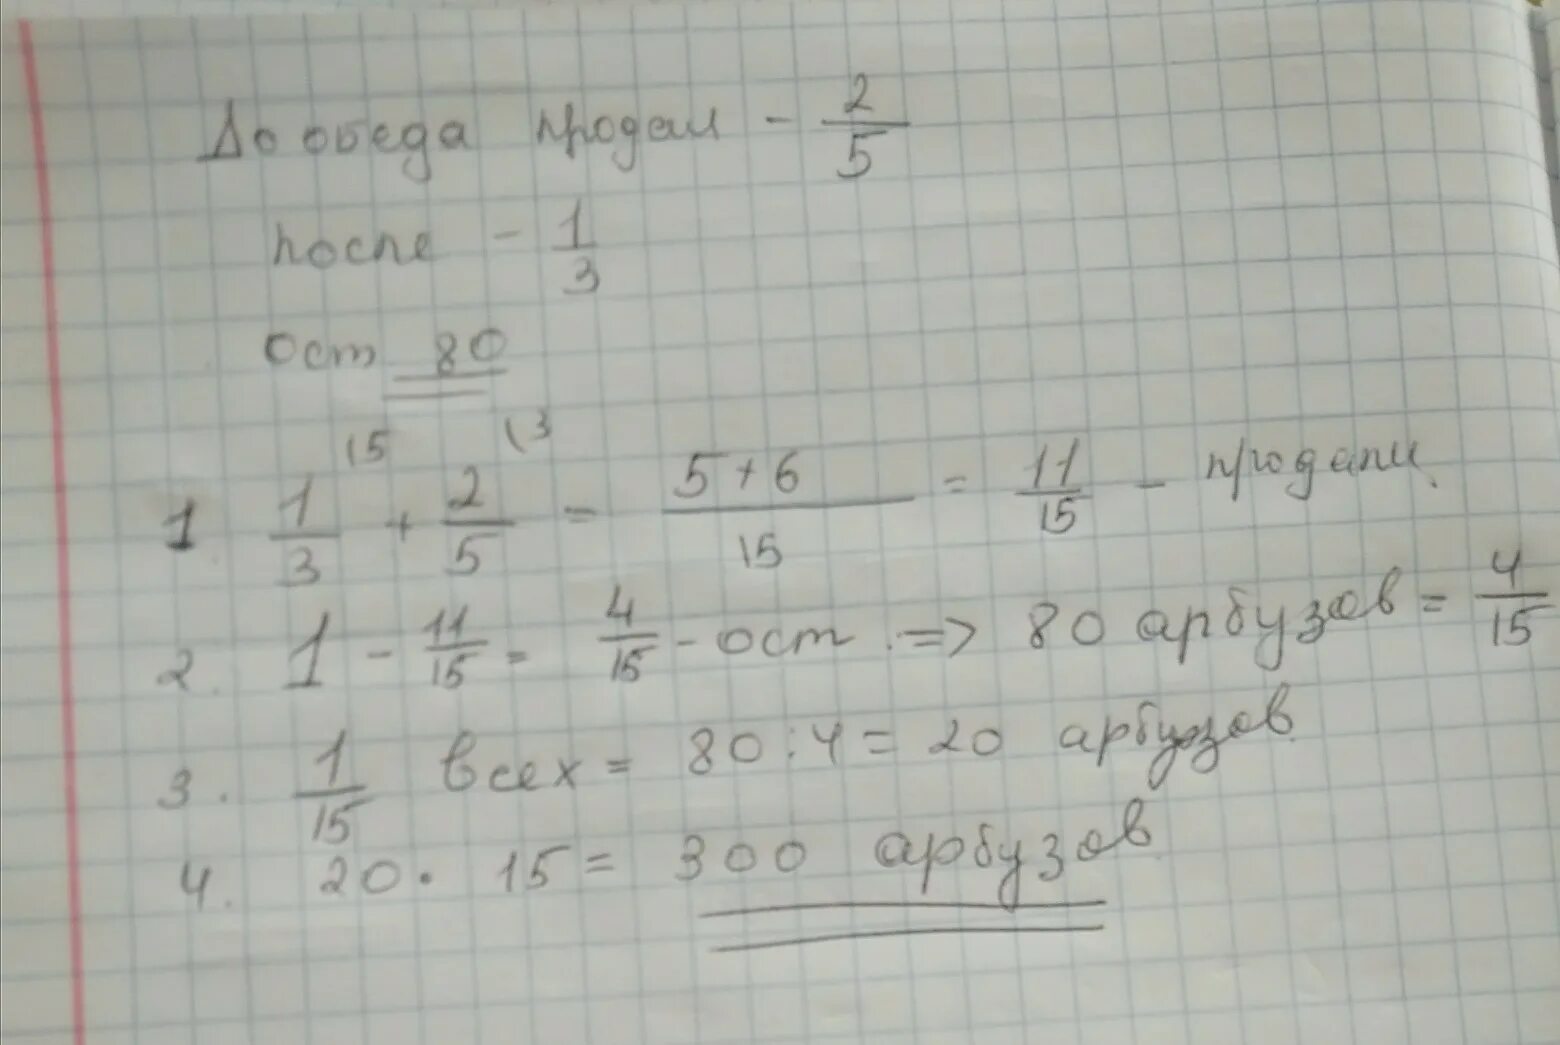 До обеда продали - 2/5
после - 1/3
ост 80
1 1/3 \5 + 2/5 \3 = 5+6/15 = 11/15 - продали
2. 1 - 11/15 = 4/15 - ост. => 80 арбузов = 4/15
3. 1/15 всех = 80:4 = 20 арбузов
4. 20 · 15 = 300 арбузов